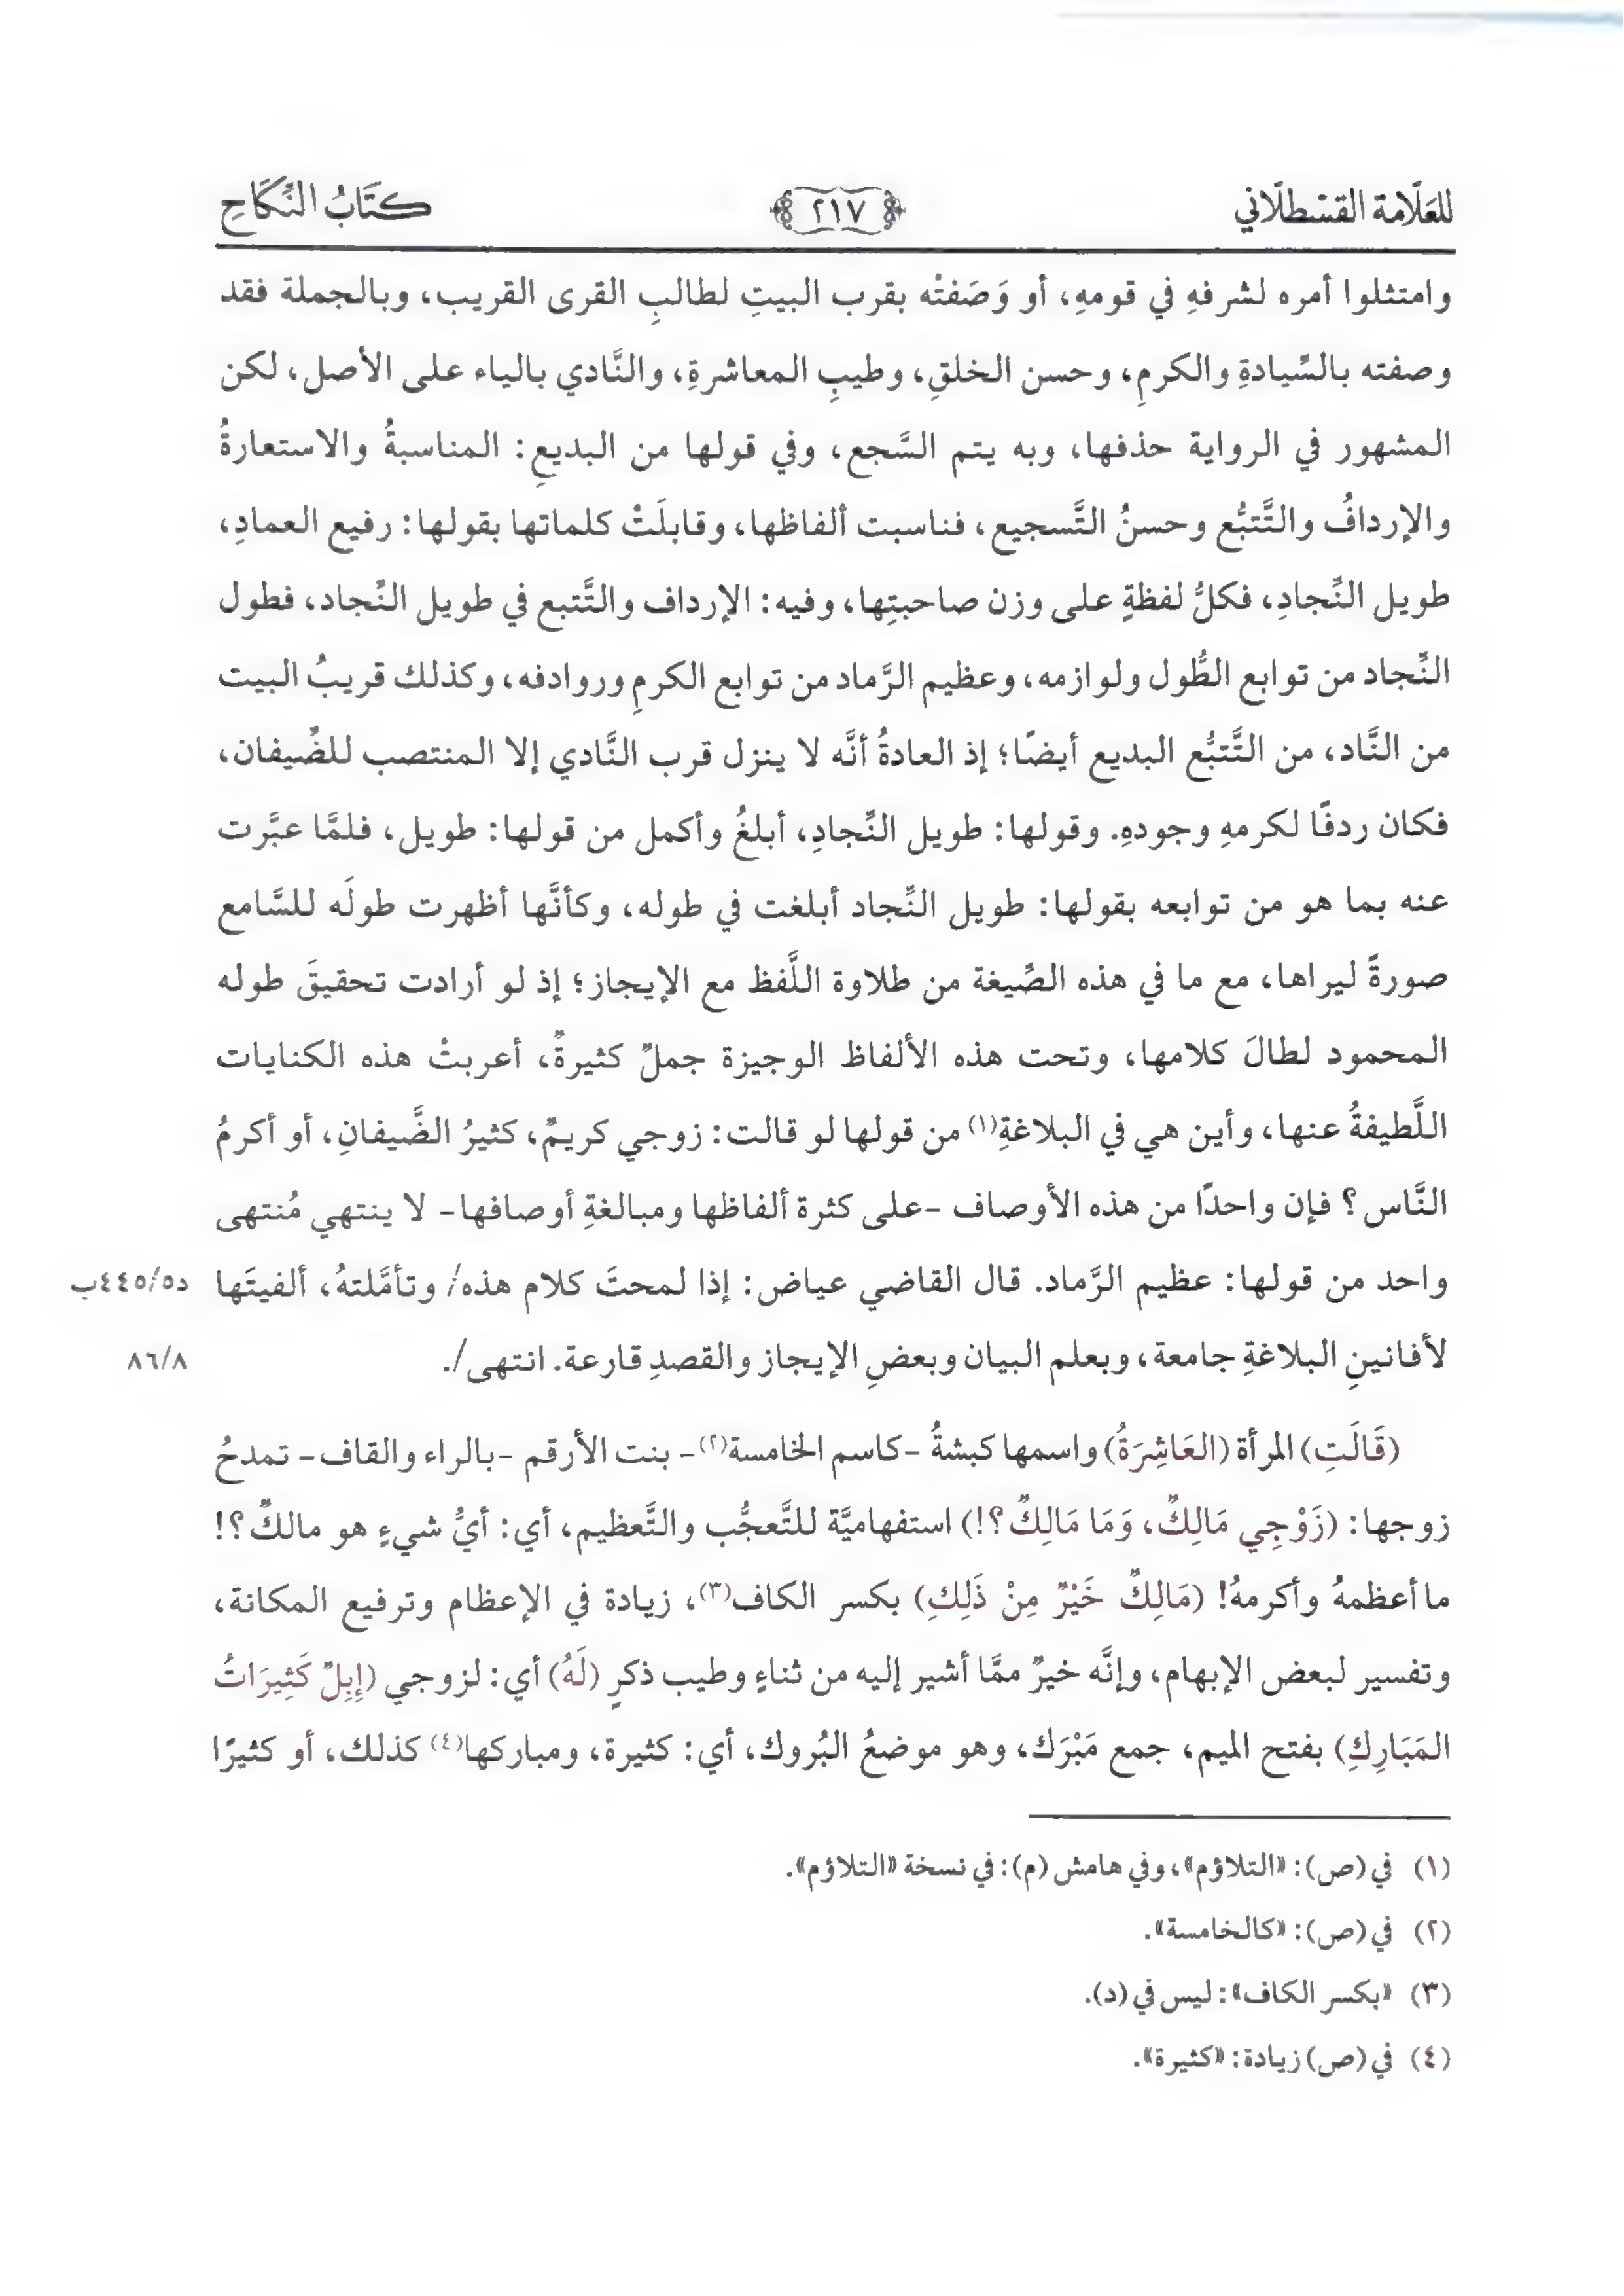 للعَلّامة القسْطلّاني ٢١٧ كتَابُ النِّكَاحِ
وامتثلوا أمره لشرفهِ في قومهِ، أو وَصَفتْه بقرب البيتِ لطالبِ القرى القريب، وبالجملة فقد
وصفته بالسِّيادةِ والكرمِ، وحسن الخلقِ، وطيبِ المعاشرةِ، والنَّادي بالياء على الأصل، لكن
المشهور في الرواية حذفها، وبه يتم السَّجع، وفي قولها من البديعِ: المناسبةُ والاستعارةُ
والإردافُ والتَّتبُّع وحسنُ التَّسجيع، فناسبت ألفاظها، وقابلَتْ كلماتها بقولها: رفيع العمادِ،
طويل النِّجادِ، فكلُّ لفظةٍ على وزن صاحبتِها، وفيه: الإرداف والتَّتبع في طويل النِّجاد، فطول
النِّجاد من توابع الطُّول ولوازمه، وعظيم الرَّماد من توابع الكرمِ وروادفه، وكذلك قريبُ البيت
من النَّاد، من التَّتبُّع البديع أيضًا؛ إذ العادةُ أنَّه لا ينزل قرب النَّادي إلا المنتصب للضِّيفان،
فكان ردفًا لكرمهِ وجودهِ. وقولها: طويل النِّجادِ، أبلغُ وأكمل من قولها: طويل، فلمَّا عبَّرت
عنه بما هو من توابعه بقولها: طويل النِّجاد أبلغت في طوله، وكأنَّها أظهرت طولَه للسَّامع
صورةً ليراها، مع ما في هذه الصِّيغة من طلاوة اللَّفظ مع الإيجاز؛ إذ لو أرادت تحقيقَ طوله
المحمود لطالَ كلامها، وتحت هذه الألفاظ الوجيزة جملٌ كثيرةٌ، أعربتْ هذه الكنايات
اللَّطيفةُ عنها، وأين هي في البلاغةِ(١) من قولها لو قالت: زوجي كريمٌ، كثيرُ الضَّيفانِ، أو أكرمُ
النَّاس؟ فإن واحدًا من هذه الأوصاف -على كثرة ألفاظها ومبالغةِ أوصافها- لا ينتهي مُنتهى
واحد من قولها: عظيم الرَّماد. قال القاضي عياض: إذا لمحتَ كلام هذه/ وتأمَّلتهُ، ألفيتَها د٤٤٥/٥ب
لأفانينِ البلاغةِ جامعة، وبعلم البيان وبعضِ الإيجاز والقصدِ قارعة. انتهى/. ٨٦/٨
(قَالَتِ) المرأة (العَاشِرَةُ) واسمها كبشةُ -كاسم الخامسة(٢)- بنت الأرقم -بالراء والقاف- تمدحُ
زوجها: (زَوْجِي مَالِكٌ، وَمَا مَالِكٌ؟!) استفهاميَّة للتَّعجُّب والتَّعظيم، أي: أيُّ شيءٍ هو مالكٌ؟!
ما أعظمهُ وأكرمهُ! (مَالِكٌ خَيْرٌ مِنْ ذَلِكِ) بكسر الكاف(٣)، زيادة في الإعظام وترفيع المكانة،
وتفسير لبعض الإبهام، وإنَّه خيرٌ ممَّا أشير إليه من ثناءٍ وطيب ذكرٍ (لَهُ) أي: لزوجي (إِبِلٌ كَثِيرَاتُ
المَبَارِكِ) بفتح الميم، جمع مَبْرَك، وهو موضعُ البُروك، أي: كثيرة، ومباركها(٤) كذلك، أو كثيرًا
(١) في (ص): «التلاؤم»، وفي هامش (م): في نسخة «التلاؤم».
(٢) في (ص): «كالخامسة».
(٣) «بكسر الكاف»: ليس في (د).
(٤) في (ص) زيادة: «كثيرة».